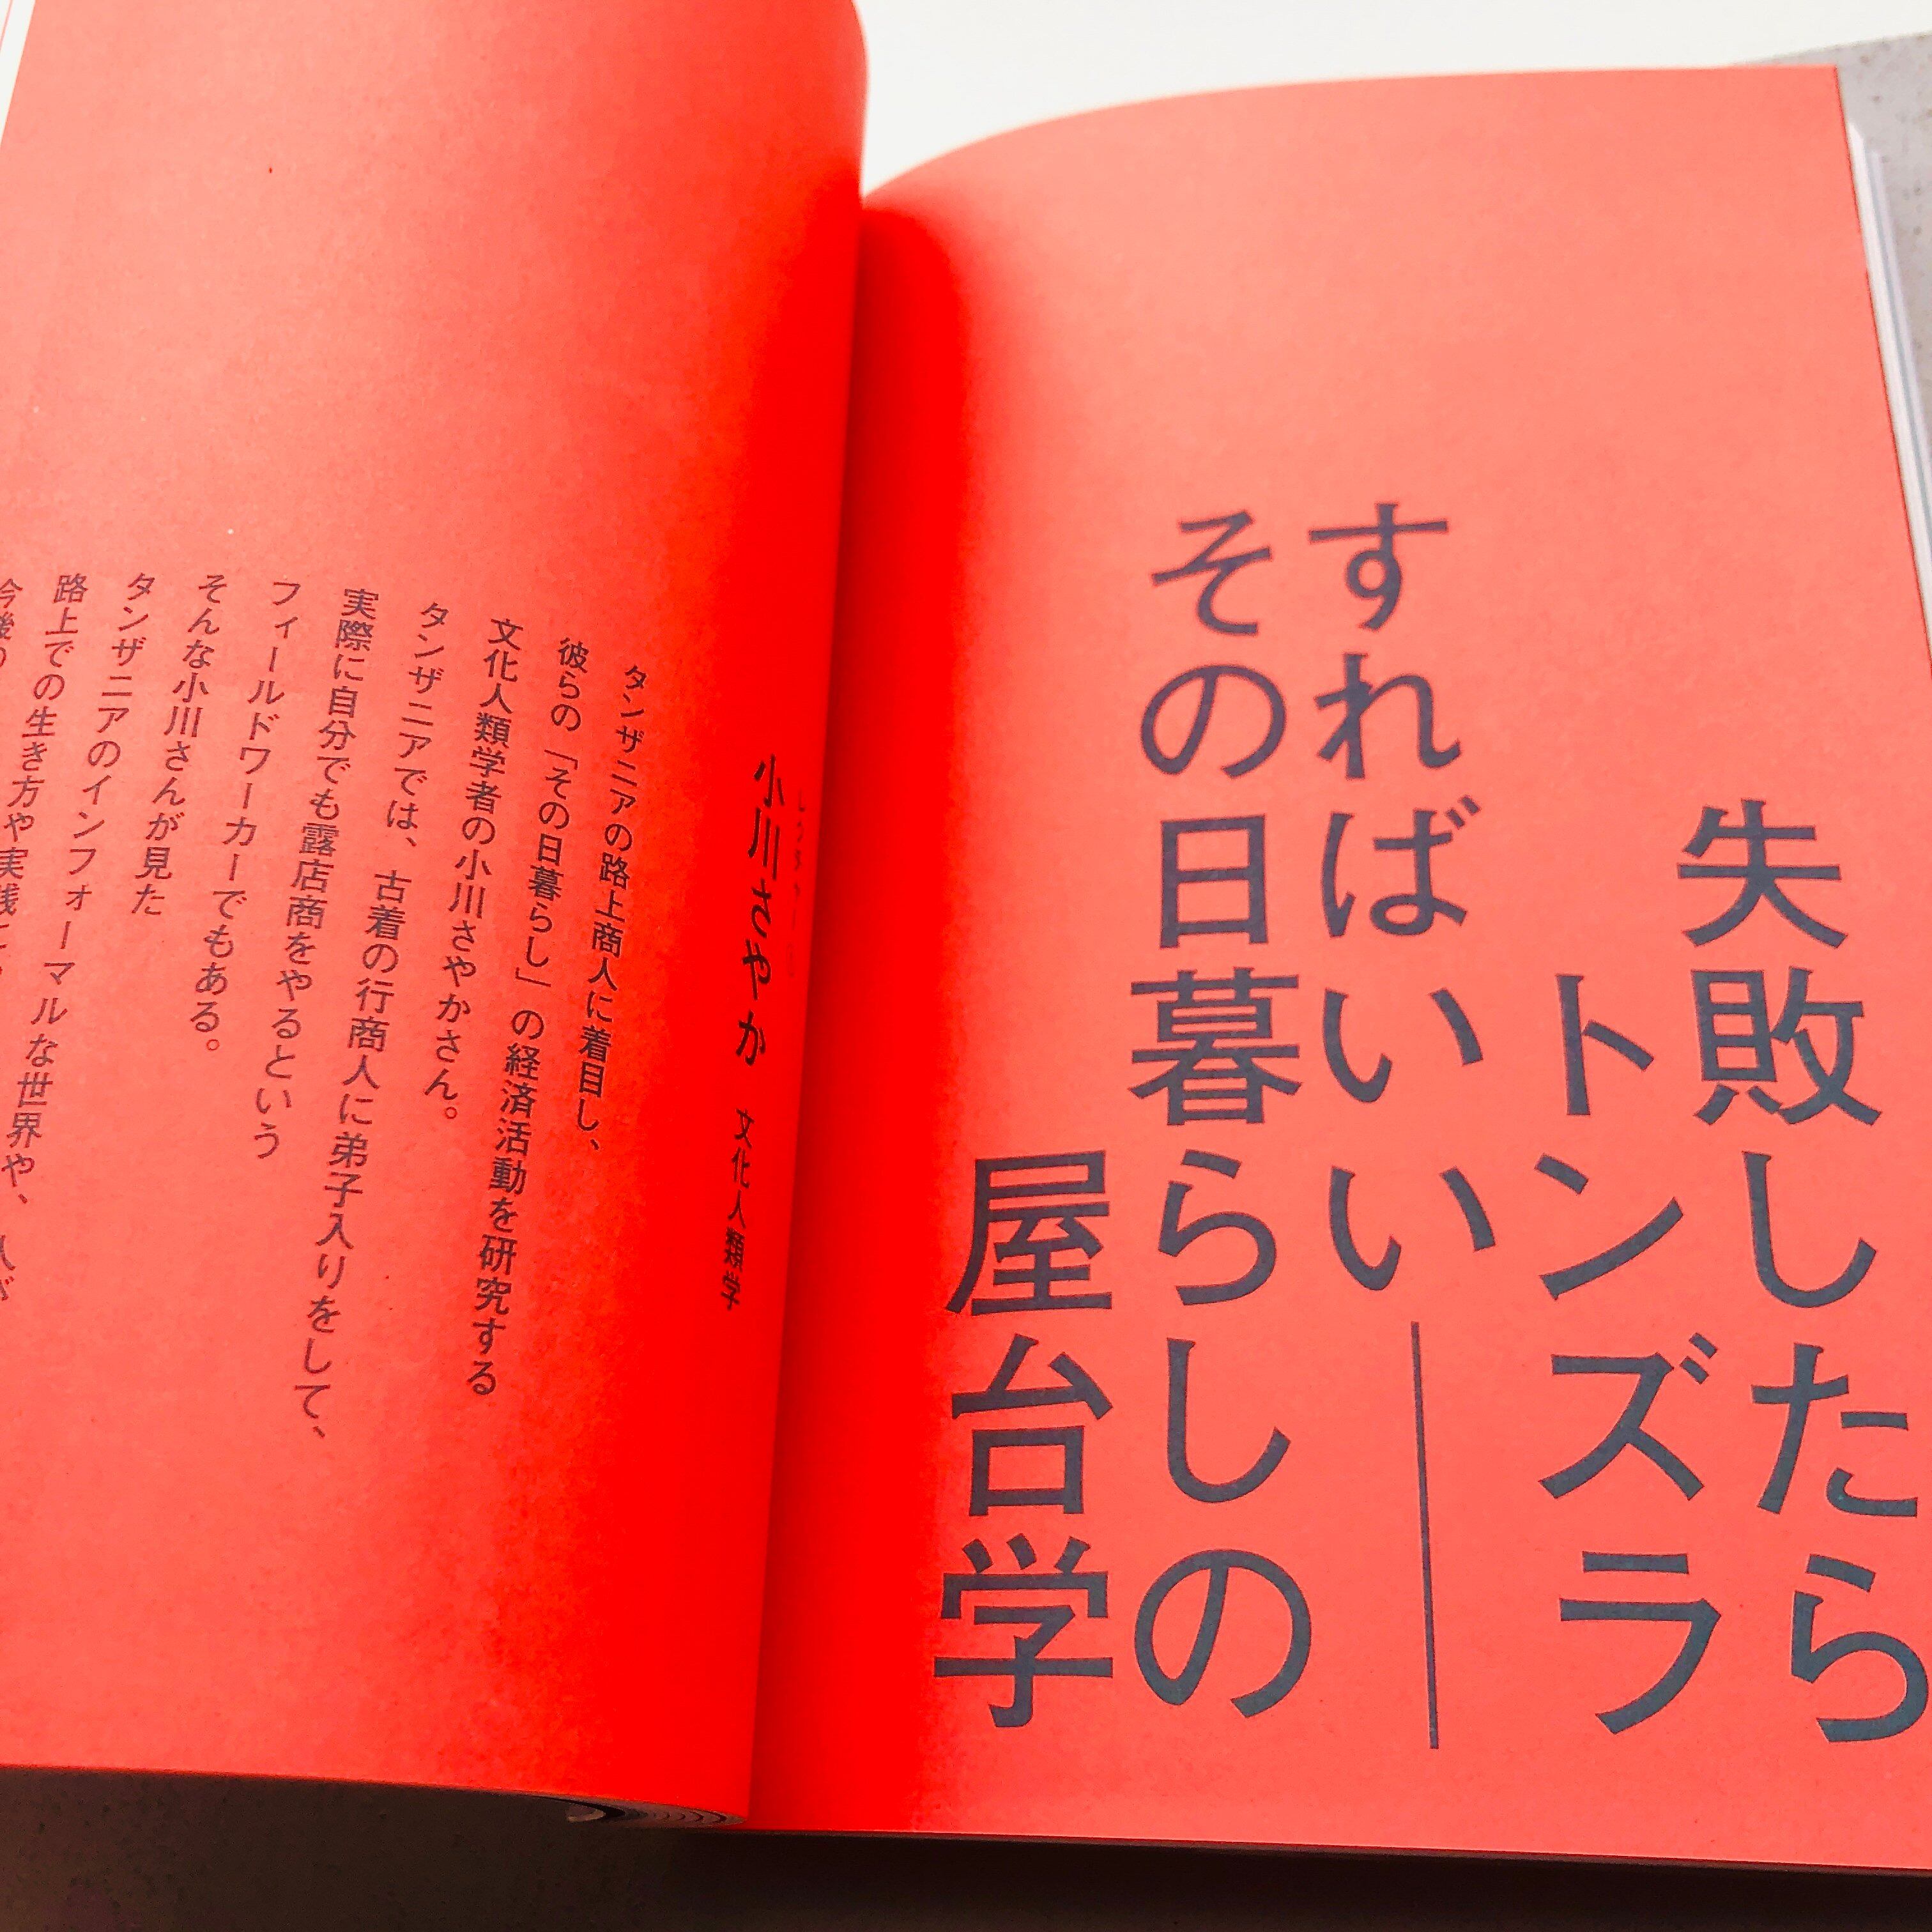 失敗したら
トンズラ
すればいい――
その日暮らしの
屋台学
小川さやか 文化人類学
タンザニアの路上商人に着目し、
彼らの「その日暮らし」の経済活動を研究する
文化人類学者の小川さやかさん。
タンザニアでは、古着の行商人に弟子入りをして、
実際に自分でも露店商をやるという
フィールドワーカーでもある。
そんな小川さんが見た
タンザニアのインフォーマルな世界や、
路上での生き方や実践
今後の